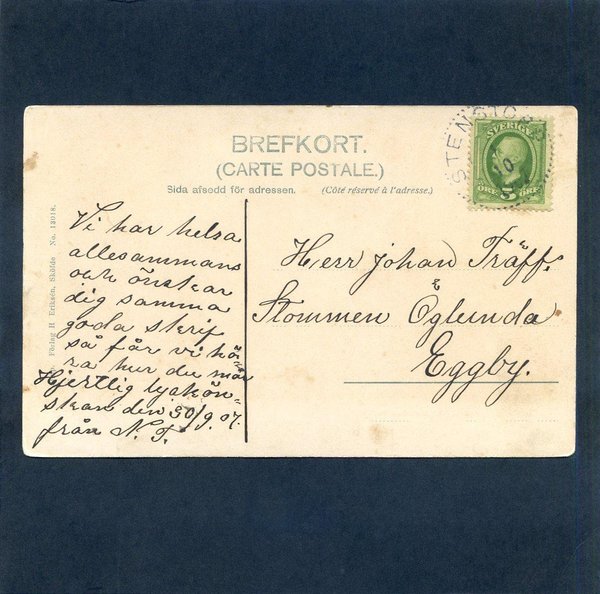 BREFKORT.
(CARTE POSTALE.)
Sida afsedd för adressen. (Côté réservé à l'adresse.)
STENSTORP
SVERIGE
ÖRE 5 ÖRE
Förlag H Eriksén, Sköfde No. 13018.
Vi har helsa
allesammans
och önskar
dig samma
goda skrif
så får vi hö-
ra hur du mår
Hjertlig lyckön-
skan den 30/9 07.
från N. F.
Herr Johan Träff.
Stommen Öglunda
Eggby.